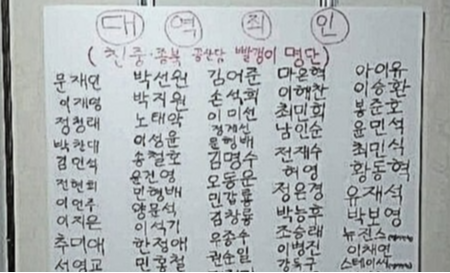 대 역 죄 인
( 친중·종북 공산당 빨갱이 명단 )
문재인 박선원 김어준 마은혁 아이유
이재명 박지원 손석희 이해찬 이승환
정청래 노태악 이미선 최민희 봉준호
박찬대 이성윤 정계선 남인순 윤민석
김민석 송철호 윤형배 전재수 최민식
전현희 윤건영 김명수 허영 황동혁
이언주 민형배 오동운 정은경 유재석
이지은 양문석 민갑룡 박능후 박보영
추미애 이석기 김창룡 조승래 뉴진스
서영교 한정애 우종수 이병진 이채연
민홍철 권순일 강득구 스테이씨